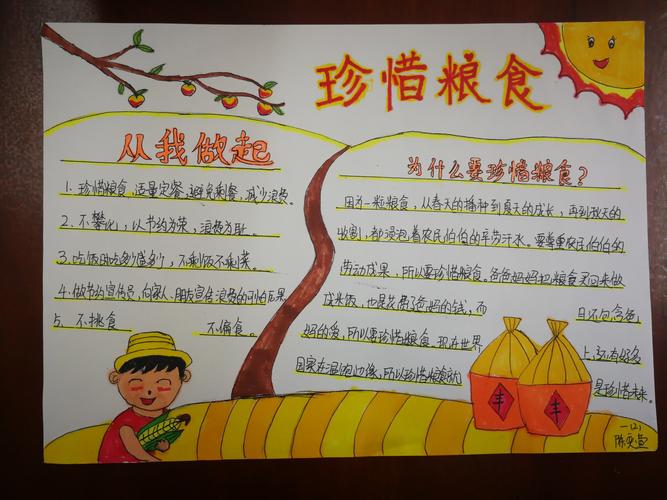 珍惜粮食
从我做起
1. 珍惜粮食,适量定餐,避免剩餐,减少浪费。
2. 不攀比,以节约为荣,浪费为耻。
3. 吃饭时吃多少盛多少,不剩饭不剩菜。
4. 做节约宣传员,向家人、朋友宣传浪费的可怕后果
5. 不挑食 不偏食。
为什么要珍惜粮食?
因为一粒粮食,从春天的播种到夏天的成长,再到秋天的
收割,都浸泡着农民伯伯的辛劳汗水。要尊重农民伯伯的
劳动成果,所以要珍惜粮食。爸爸妈妈把粮食买回来做
成米饭,也是花费了爸妈的钱,而 且还包含爸
妈的爱,所以要珍惜粮食。现在世界 上,还有好多
国家在 所以珍惜粮食就 是珍惜未来。
丰
丰
一(2)
陈